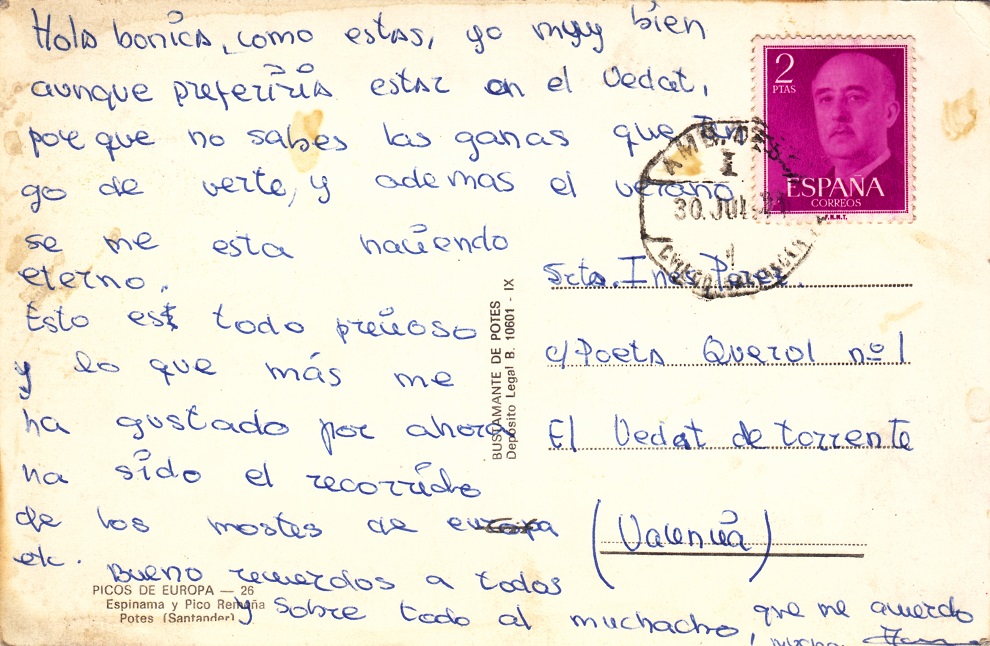 Hola bonica, como estas, yo muy bien
aunque preferiria estar en el Vedat,
por que no sabes las ganas que ten
go de verte, y ademas el verano
se me esta haciendo
eterno.
Esto est todo precioso
y lo que más me
ha gustado por ahora
ha sido el recorrido
de los mostes de europa
etc. Bueno recuerdos a todos
y sobre todo al muchacho, que me acuerdo
mucho
2
PTAS
ESPAÑA
CORREOS
F.N.M.T.
AMB. DES
I
30 JUL
Srta. Ine Perez.
c/Poeta Querol nº 1
El Vedat de torrente
(Valencia)
BUSTAMANTE DE POTES
Depósito Legal B. 10601 - IX
PICOS DE EUROPA — 26
Espinama y Pico Remoña
Potes (Santander)